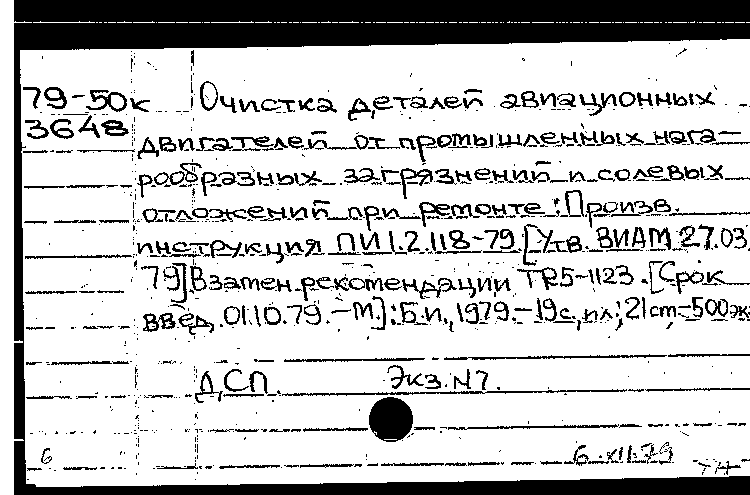 79-50к Очистка деталей авиационных
3648 двигателей от промышленных нага-
рообразных загрязнений и солевых
отложений при ремонте: Произв.
инструкция ПИ1.2.118-79.[Утв. ВИАМ 27.03.
79]Взамен.рекомендации TR5-1123.[Срок
введ. 01.10.79.-М]:Б.и.,1979.-19с.,ил.;21см.-500эк
ДСП. Экз.N7.
6 6.XII.79